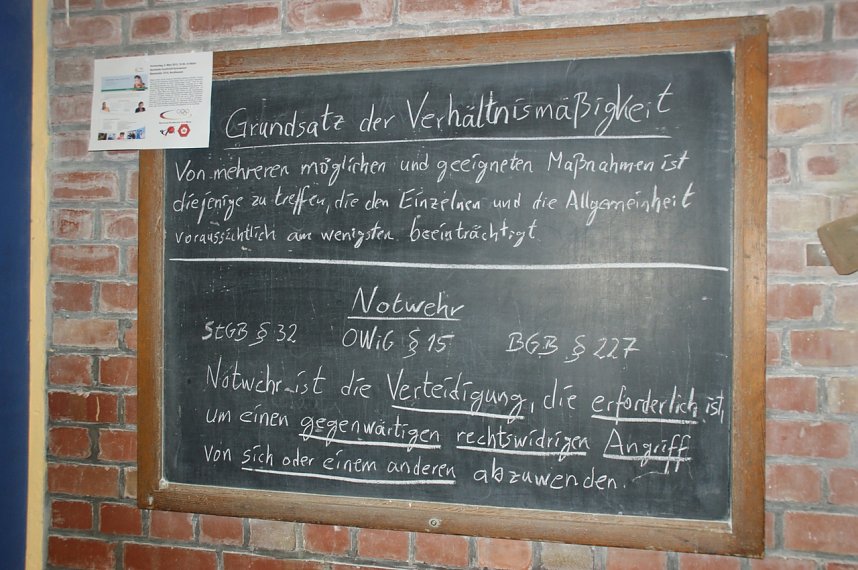 Grundsatz der Verhältnismäßigkeit
Von mehreren möglichen und geeigneten Maßnahmen ist
diejenige zu treffen, die den Einzelnen und die Allgemeinheit
voraussichtlich am wenigsten beeinträchtigt
Notwehr
StGB § 32 OWiG § 15 BGB § 227
Notwehr ist die Verteidigung, die erforderlich ist,
um einen gegenwärtigen rechtswidrigen Angriff
von sich oder einem anderen abzuwenden.